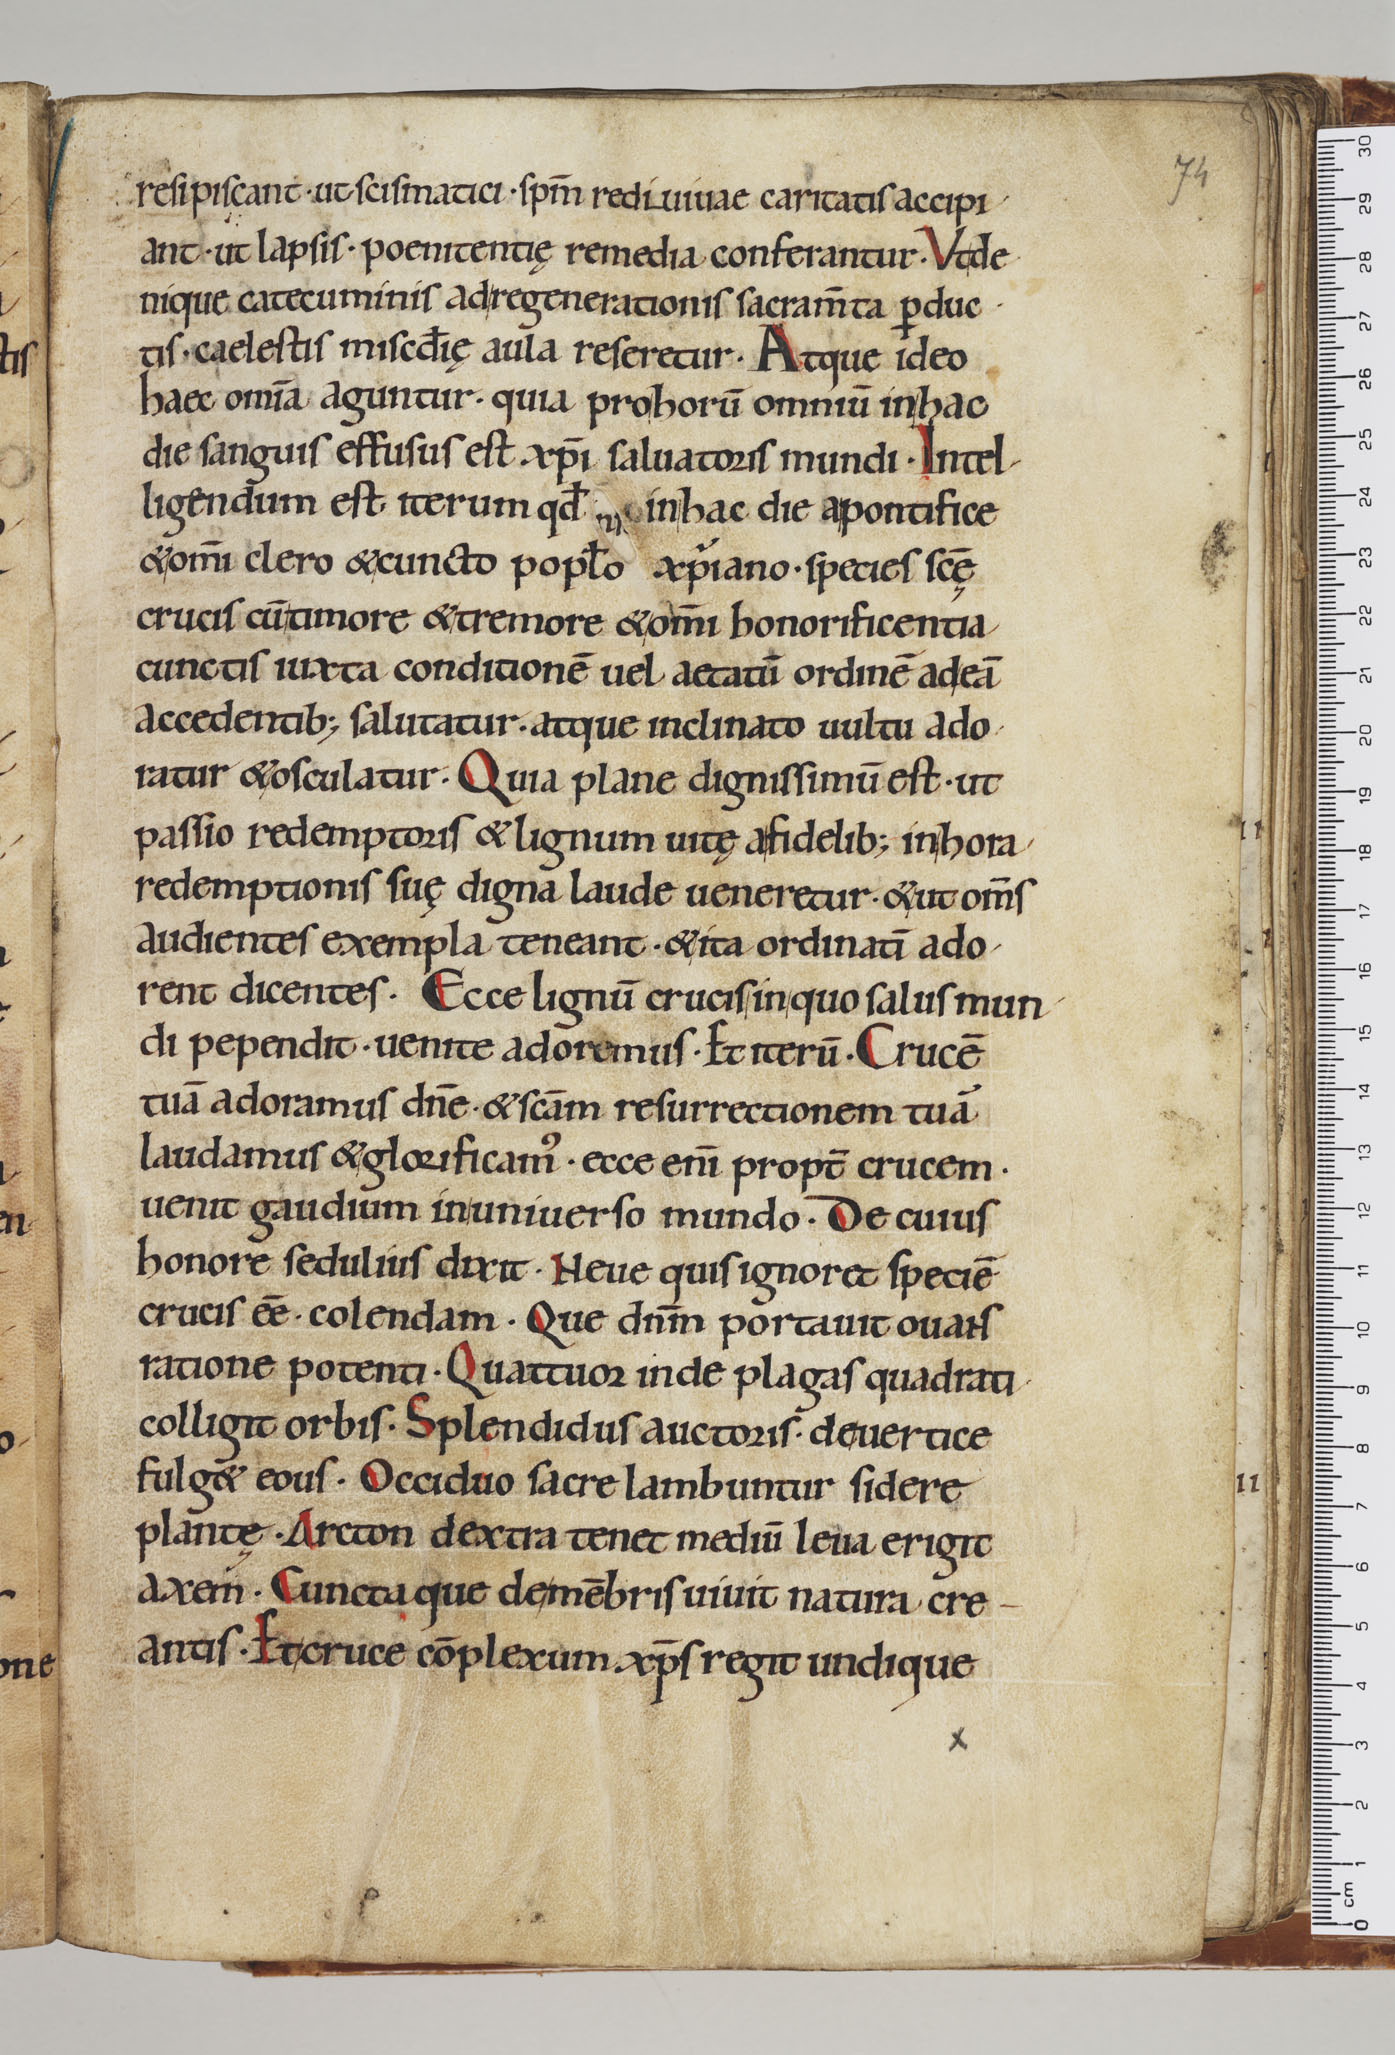 74
resipiscant · ut scismatici · spm̄ rediuiuae caritatis accipi
ant · ut lapsis · poenitentię remedia conferantur · Vt de
nique catecuminis ad regenerationis sacram̄ta ꝑduc
tis · caelestis miscđię aula reseretur · Atque ideo
haec omīa aguntur · quia pro horū omniū in hac
die sanguis effusus est xp̄i saluatoris mundi · Intel
ligendum est iterum qđ in hac die a pontifice
& om̄i clero & cuncto popl̄o xp̄iano · species scę̄
crucis cū timore & tremore & om̄i honorificentia
cunctis iuxta conditionē uel aetatū ordinē ad eā
accedentib; salutatur · atque inclinato uultu ado
ratur & osculatur · Quia plane dignissimū est · ut
passio redemptoris & lignum uitę a fidelib; in hora
redemptionis suę digna laude ueneretur · & ut om̄s
audientes exempla teneant · & ita ordinatī ado
rent dicentes · Ecce lignū crucis in quo salus mun
di pependit · uenite adoremus · Et iterū · Crucē
tuā adoramus dn̄e · & scām resurrectionem tuā
laudamus & glorificam᾿ · ecce enī propt̄ crucem ·
uenit gaudium in uniuerso mundo · De cuius
honore sedulius dixit · Neue quis ignoret speciē
crucis eē · colendam · Que dn̄m portauit ouans
ratione potenti · Quattuor inde plagas quadrati
colligit orbis · Splendidus auctoris · de uertice
fulg& eous · Occiduo sacre lambuntur sidere
plāntę · Arcton dextra tenet mediū leua erigit
axem · Cuncta que de mēbris uiuit natura cre
antis · Et cruce cōplexum xp̄s regit undique
x